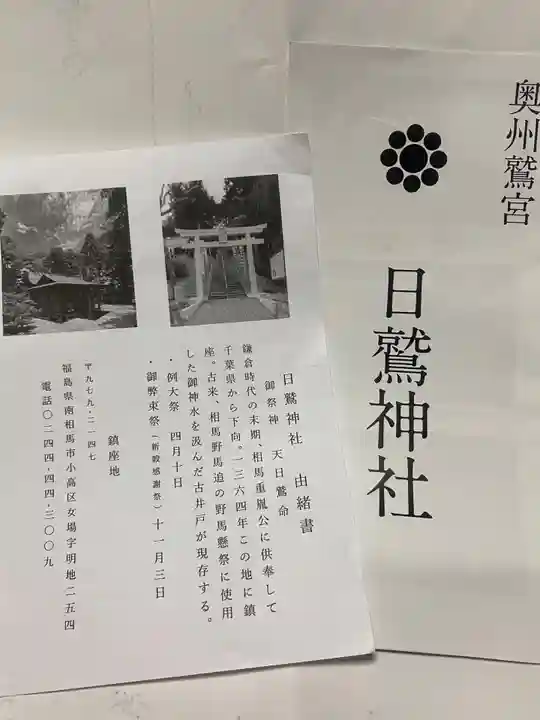 奥州鷲宮
日鷲神社
日鷲神社 由緒書
御祭神 天日鷲命
鎌倉時代の末期、相馬重胤公に供奉して
千葉県から下向。一三六四年この地に鎮
座。古来、相馬野馬追の野馬懸祭に使用
した御神水を汲んだ古井戸が現存する。
・例大祭 四月十日
・御弊束祭（新穀感謝祭）十一月三日
鎮座地
〒九七九-二一四七
福島県南相馬市小高区女場字明地二五四
電話〇二四四-四四-三〇〇九